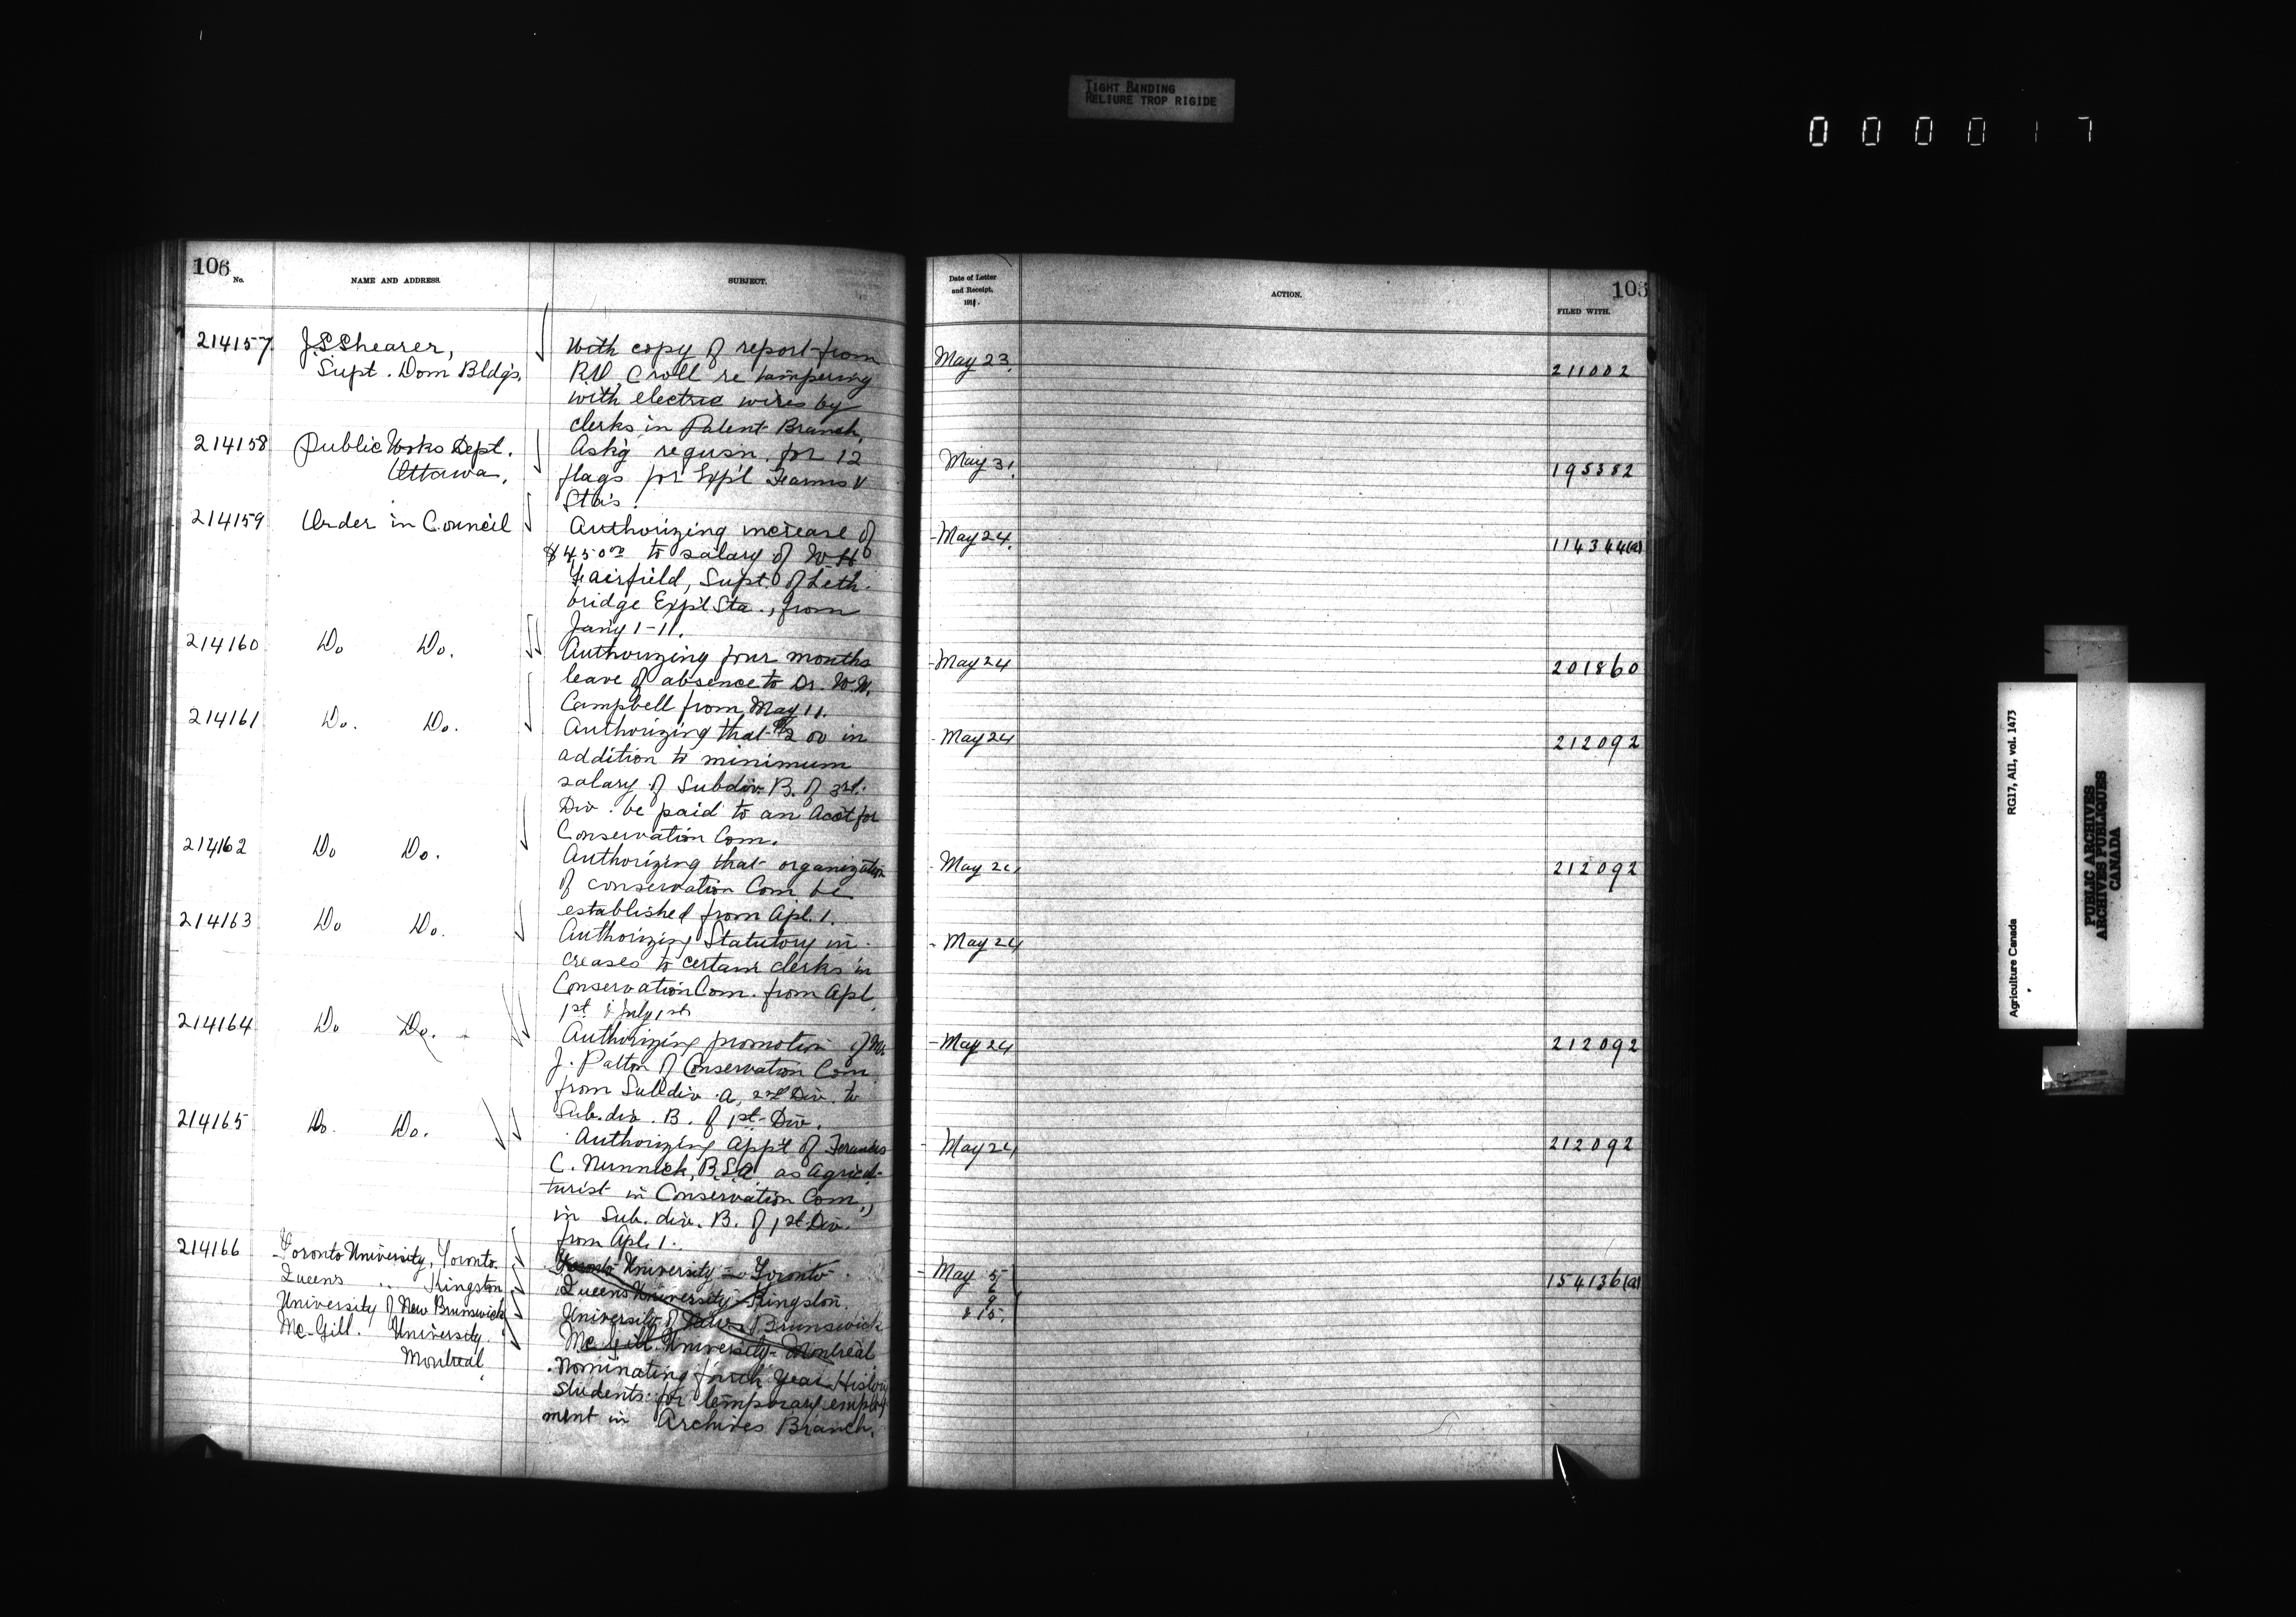 TIGHT BINDING
RELIURE TROP RIGIDE
000017
106
No.
NAME AND ADDRESS.
SUBJECT.
214157
J.S Shearer,
Supt. Dom Bldgs,
With copy of report from
R.V. Croll re tampering
with electric wires by
clerks in Patent Branch,
214158
Public Works Dept.
Ottawa,
Ask'g requsn. for 12
flags for Exp'l Farms &
Sta's.
214159
Order in Council
Authorizing increase of
$450 00 to salary of W H
Fairfield, Supt. of Leth-
bridge Exp'l Sta., from
Jan'y 1-11.
214160
Do Do.
Authorizing four months
leave of absence to Dr. W.W.
Campbell from May 11.
214161
Do. Do.
Authorizing that $200 in
addition to minimum
salary of Subdiv. B. of 3rd.
Div. be paid to an Acc't for
Conservation Com.
214162
Do Do.
Authorizing that organization
of conservation Com be
established from Apl. 1.
214163
Do Do.
Authorizing Statutory in-
creases to certain clerks in
Conservation Com. from Apl.
1st & July 1st
214164
Do Do.
Authorizing promotion of Mr
J. Patton of Conservation Com
from Subdiv. A, 2nd Div. to
Sub.div. B. of 1st Div.
214165
Do. Do.
Authorizing app't of Francis
C. Nunnick, B.S.A. as Agricul-
turist in Conservation Com.,
in Sub. div. B. of 1st Div.
from Apl. 1.
214166
Toronto University, Toronto.
Queens " Kingston
University of New Brunswick
Mc-Gill. University.
Montreal,
Toronto University - Toronto.
Queens University - Kingston.
University of New Brunswick
McGill University - Montreal
Nominating fourth Year History
students for temporary employ
ment in Archives Branch.
Date of Letter
and Receipt,
1911.
ACTION.
FILED WITH.
May 23.
211002
May 31.
195382
May 24.
114344(a)
May 24
201860
May 24
212092
May 24
212092
May 24
May 24
212092
May 24
212092
May 5
9
& 15.
154136(a)
Agriculture Canada
RG17, AII, vol. 1473
PUBLIC ARCHIVES
ARCHIVES PUBLIQUES
CANADA